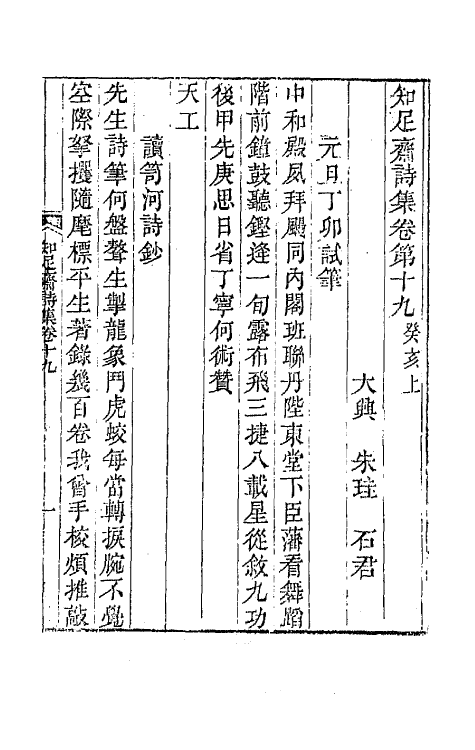 知足齋詩集卷第十九 癸亥上
大興 朱珪 石君
元旦丁卯試筆
中和殿夙拜颺同內閣班聯丹陛東堂下臣藩看舞蹈
階前鐘鼓聽鏗逢一旬露布飛三捷八載星從敘九功
後甲先庚思日省丁寧何術贊
天工
讀笥河詩鈔
先生詩筆何盤聱生掣龍象鬥虎蛟每當轉捩腕不覺
空際拏攫隨麾標平生著錄幾百卷我曾手校煩推敲
知足齋詩集卷十九
一